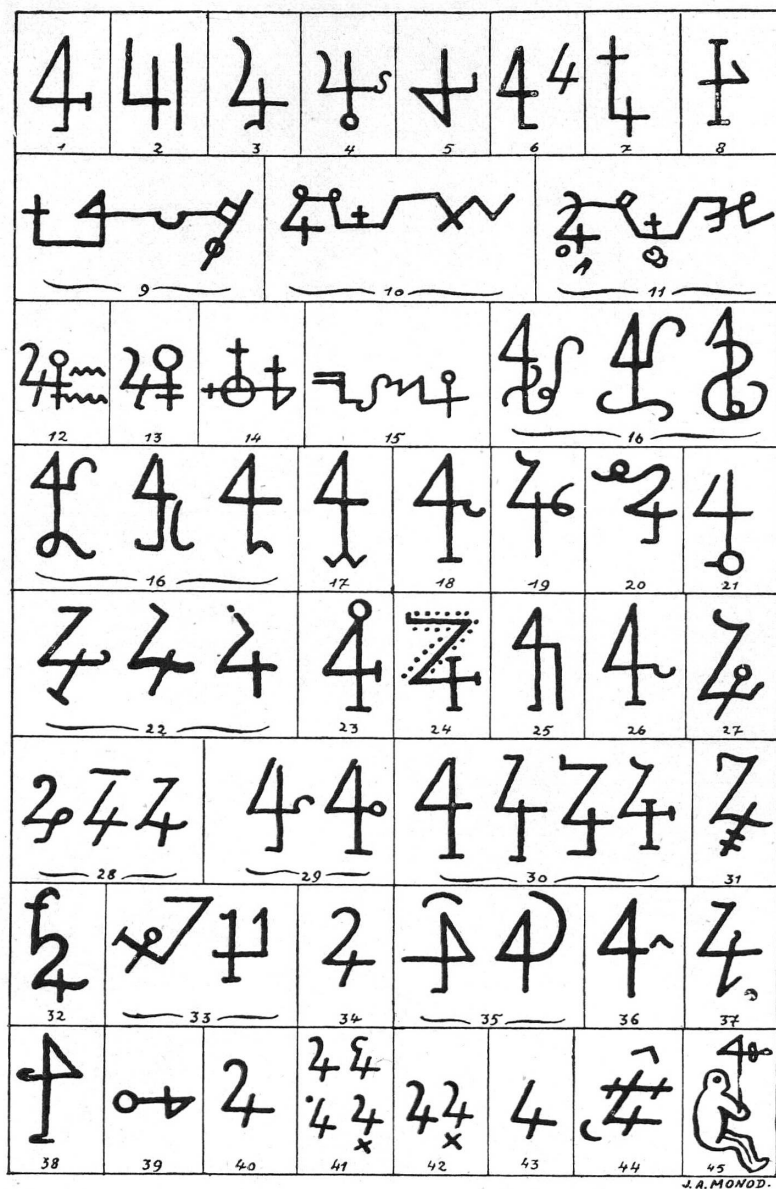 1 2 3 4 5 6 7 8
9 10 11
12 13 14 15 16
16 17 18 19 20 21
22 23 24 25 26 27
28 29 30 31
32 33 34 35 36 37
38 39 40 41 42 43 44 45
J.A.MONOD.